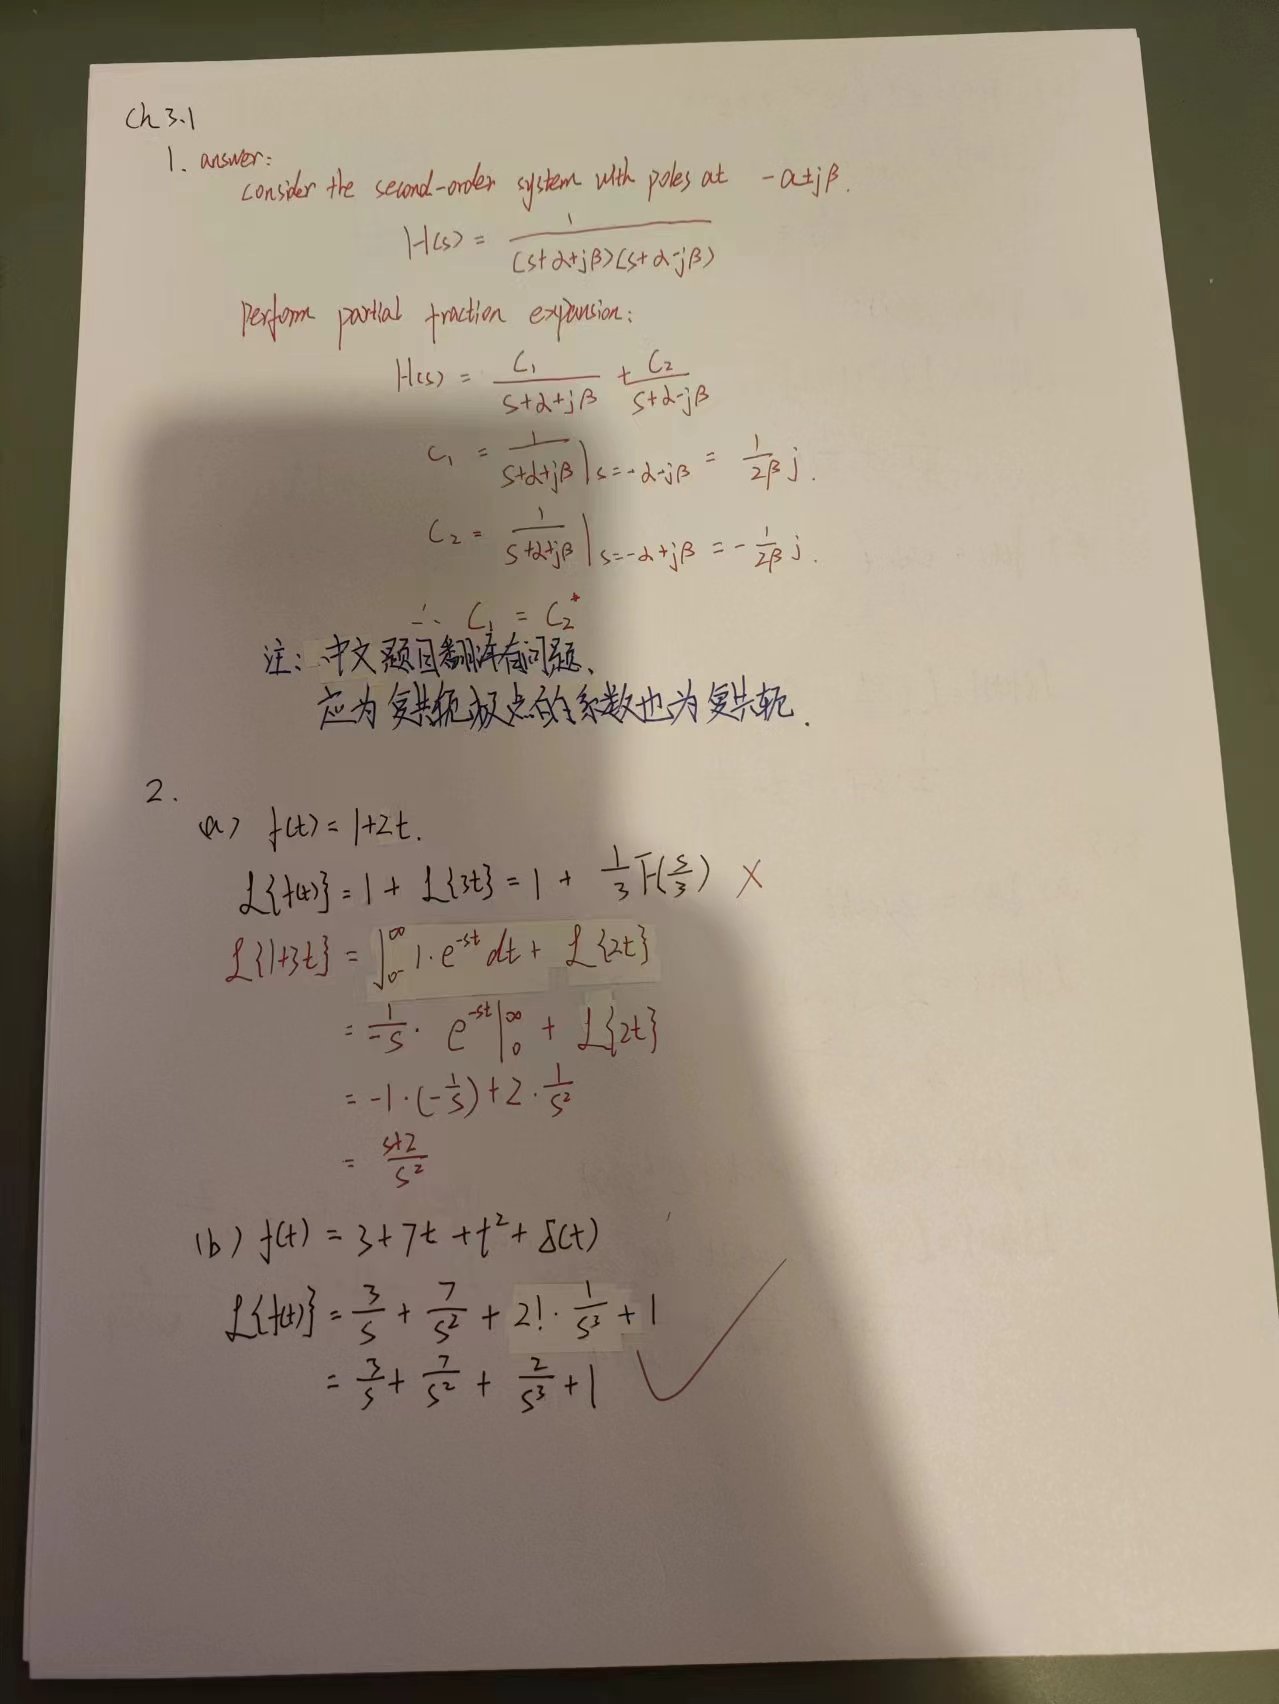 Ch 3.1
1. answer:
consider the second-order system with poles at -α±jβ.
H(s) = 1/((s+α+jβ)(s+α-jβ))
Perform partial fraction expansion:
H(s) = C₁/(s+α+jβ) + C₂/(s+α-jβ)
C₁ = 1/(s+α+jβ)|s=-α-jβ = 1/(2β) j.
C₂ = 1/(s+α+jβ)|s=-α+jβ = -1/(2β) j.
∴ C₁ = C₂*
注: 中文题目翻译有问题、
应为复共轭极点的系数也为复共轭.
2.
(a) f(t) = 1+2t.
ℒ{f(t)} = 1 + ℒ{3t} = 1 + 1/3 F(s/3) ×
ℒ{1+3t} = ∫₀₋^∞ 1·e^(-st) dt + ℒ{2t}
= 1/(-s) · e^(-st)|₀^∞ + ℒ{2t}
= -1·(-1/s) + 2·1/s²
= (s+2)/s²
(b) f(t) = 3+7t+t²+δ(t)
ℒ{f(t)} = 3/s + 7/s² + 2!·1/s³ + 1
= 3/s + 7/s² + 2/s³ + 1 ✓